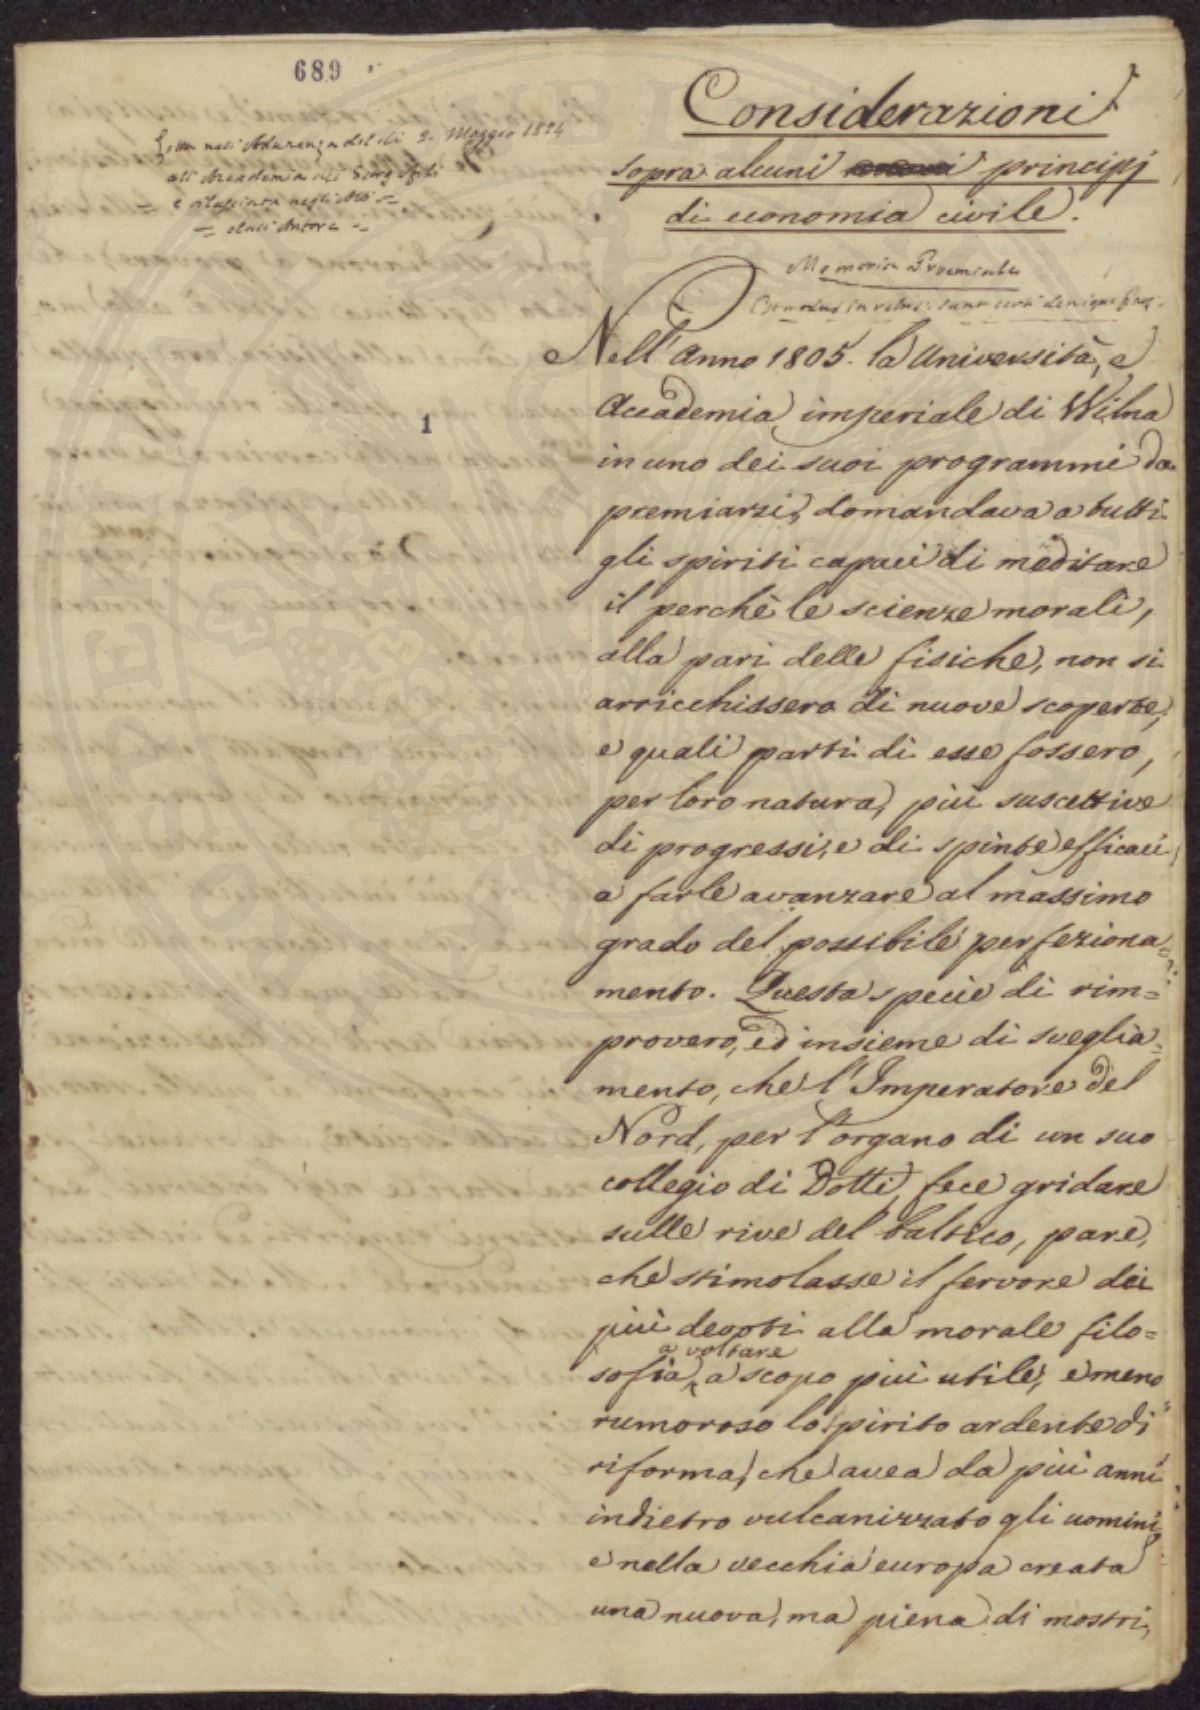 689
Letta nell'Adunanza del dì 2. Maggio 1824
all'Accademia dei Georgofili
= e rilasciata negli Atti =
= dall'Autore =
Considerazioni
sopra alcuni principj
di economia civile.
Memoria Proemiale
Est modus in rebus: sunt certi denique fines.
1
Nell'Anno 1805. la Università, e
Accademia imperiale di Wilna
in uno dei suoi programmi da
premiarsi, domandava a tutti
gli spiriti capaci di meditare
il perchè le scienze morali,
alla pari delle fisiche, non si
arricchissero di nuove scoperte,
e quali parti di esse fossero,
per loro natura, più suscettive
di progressi, e di spinte efficaci
a farle avanzare al massimo
grado del possibile perfeziona=
mento. Questa specie di rim=
provero, ed insieme di sveglia=
mento, che l'Imperatore del
Nord, per l'organo di un suo
collegio di Dotti, fece gridare
sulle rive del baltico, pare,
che stimolasse il fervore dei
più devoti alla morale filo=
sofia, a voltare a scopo più utile, e meno
rumoroso lo spirito ardente di
riforma, che avea da più anni
indietro vulcanizzato gli uomini,
e nella vecchia europa creata
una nuova, ma piena di mostri,